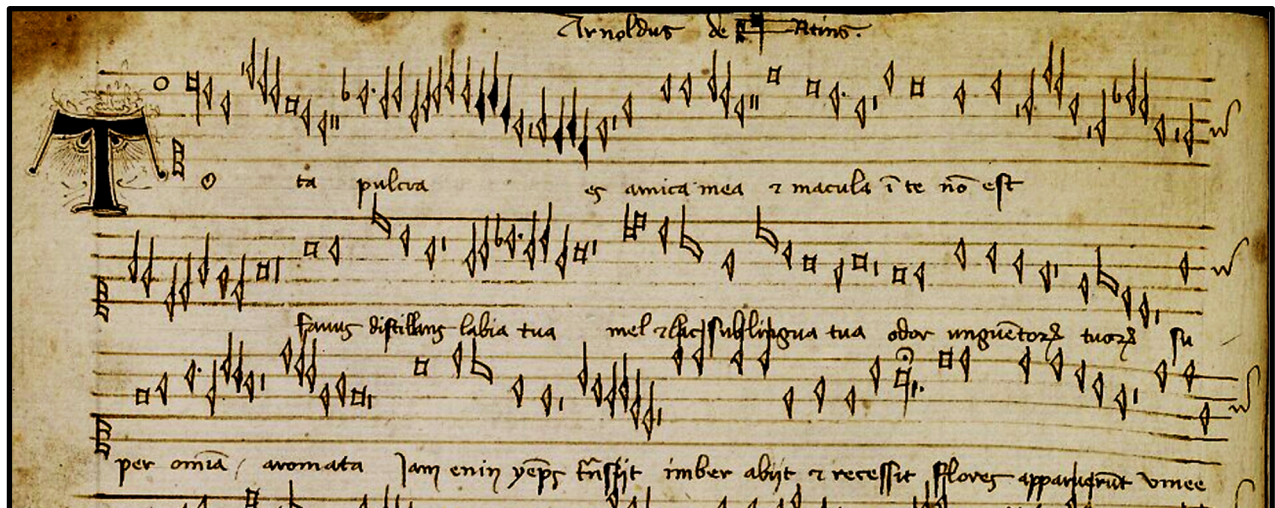 Arnoldus de
T o ta pulcra es amica mea ⁊ macula ī te nō est
fauus distillans labia tua mel ⁊ lac sub lingua tua odor unguētoꝝ tuoꝝ su
per omīa aromata Jam enim yēps trāsiit imber abijt ⁊ recessit fflores apparuerūt vinee